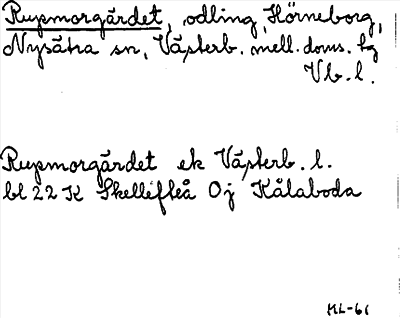 Rupmorgärdet, odling, Hörneborg,
Nysätra sn, Västerb. mell. doms. tg
Vb. l.
Rupmorgärdet ek Västerb. l.
bl 22 K Skellefteå Oj Kålaboda
ML-61